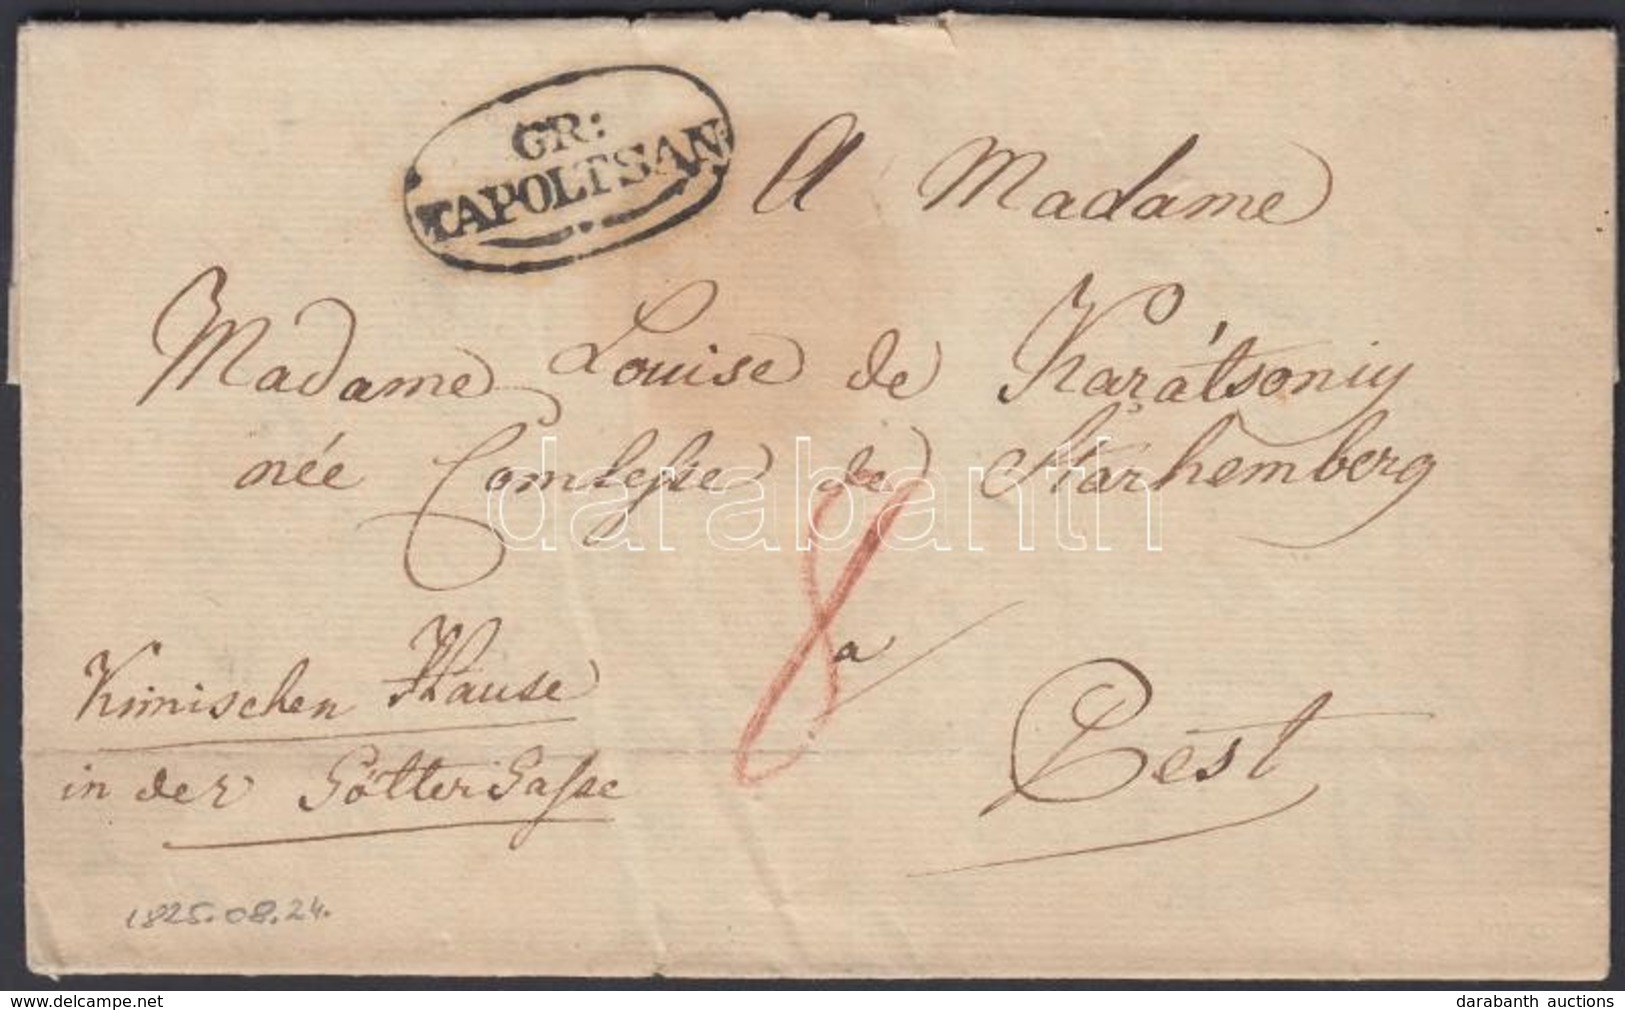 GR:
TAPOLTSAN:
A Madame
Madame Louise de Karátsoniy
née Comtesse de Starhemberg
darabanth
8
a
Kinnischen Hause
Pest
in der Götter Gasse
1825.08.24.
darabanth auctions